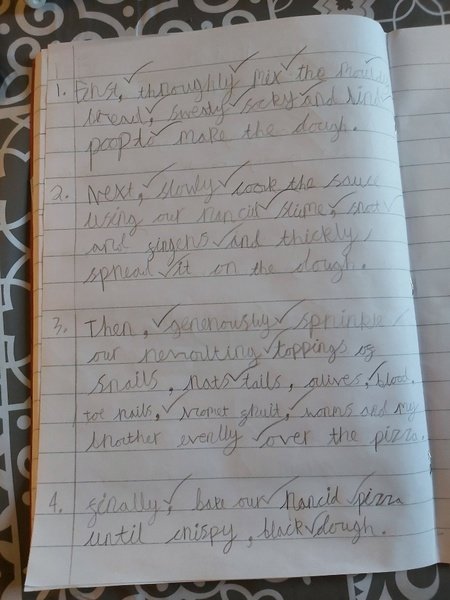 1. First, throughly mix the
bread, sweaty socks and
poop to make the dough.
2. Next, slowly cook the sauce
using our rancid slime, snot
and gingers and thickly
spread it on the dough.
3. Then, generously sprinkle
our revolting toppings of
snails, rats tails, olives, blood,
toe nails, vomet fruit, worms and my
brother evenlly over the pizza.
4. finally, bake our rancid pizza
until crispy, black dough.